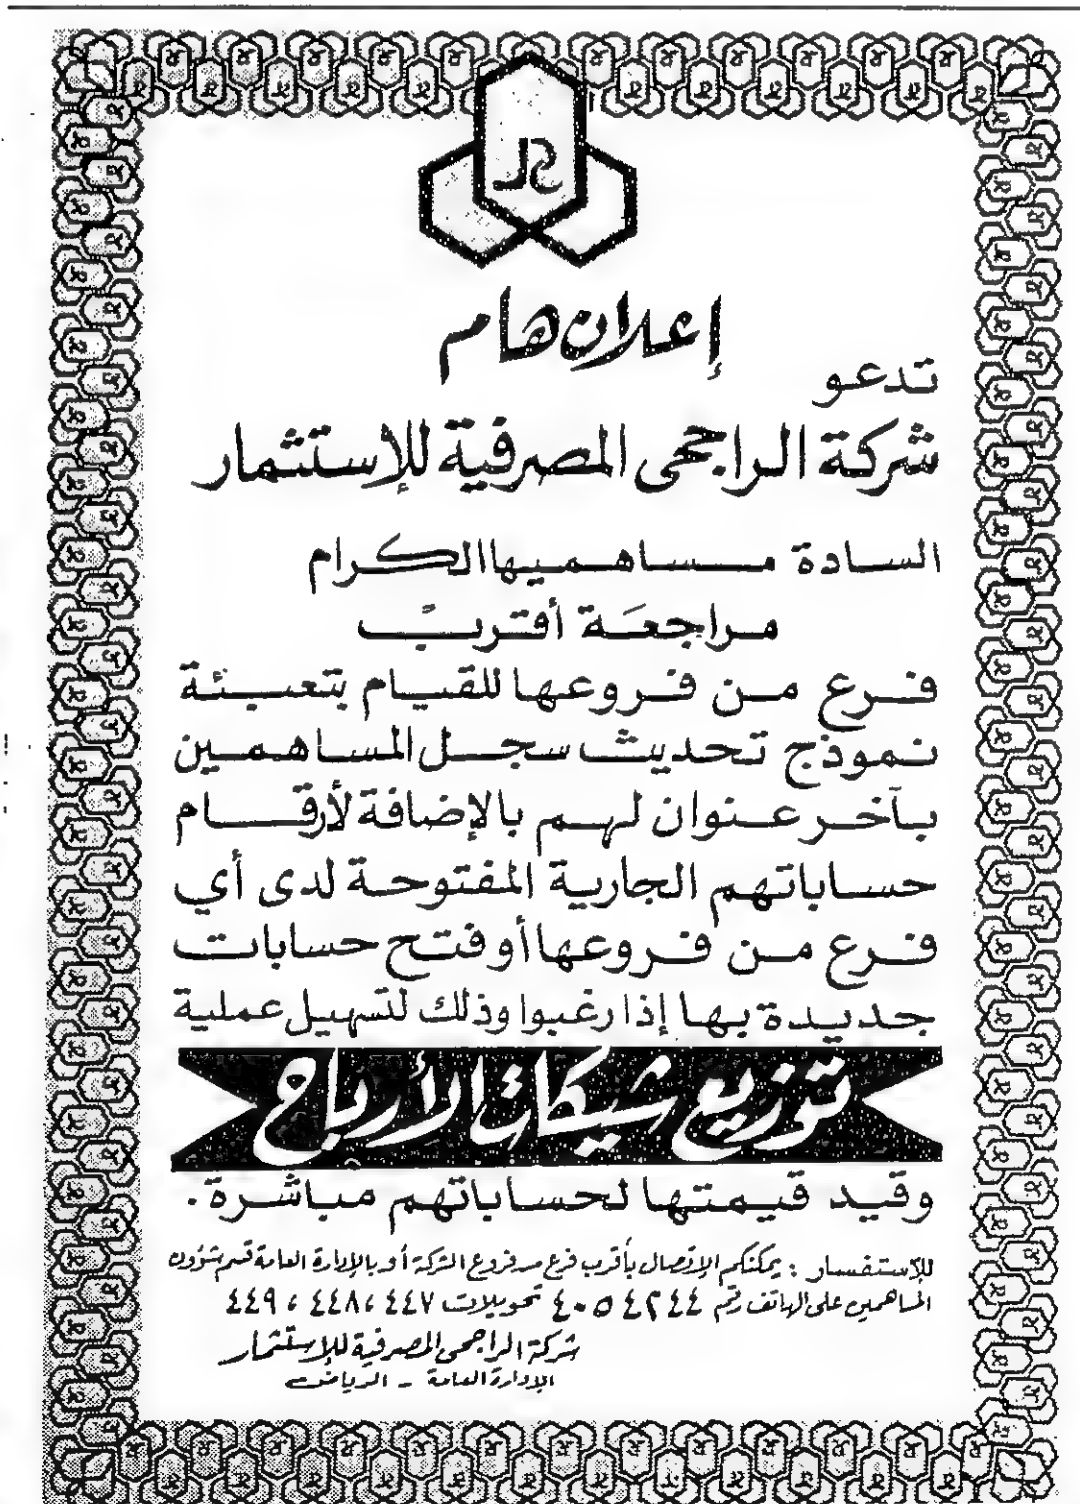 إعلان هام
تدعو
شركة الراجحى المصرفية للإستثمار
السادة مساهميها الكرام
مراجعة أقرب
فرع من فروعها للقيام بتعبئة
نموذج تحديث سجل المساهمين
بآخر عنوان لهم بالإضافة لأرقام
حساباتهم الجارية المفتوحة لدى أي
فرع من فروعها أو فتح حسابات
جديدة بها إذا رغبوا وذلك لتسهيل عملية
توزيع شيكات الأرباح
وقيد قيمتها لحساباتهم مباشرة .
للإستفسار : يمكنكم الإتصال بأقرب فرع من فروع الشركة أو بالإدارة العامة قسم شؤون
المساهمين على الهاتف رقم ٤٠٥٤٢٤٤ تحويلات ٤٤٧ ، ٤٤٨ ، ٤٤٩
شركة الراجحى المصرفية للإستثمار
الإدارة العامة - الرياض